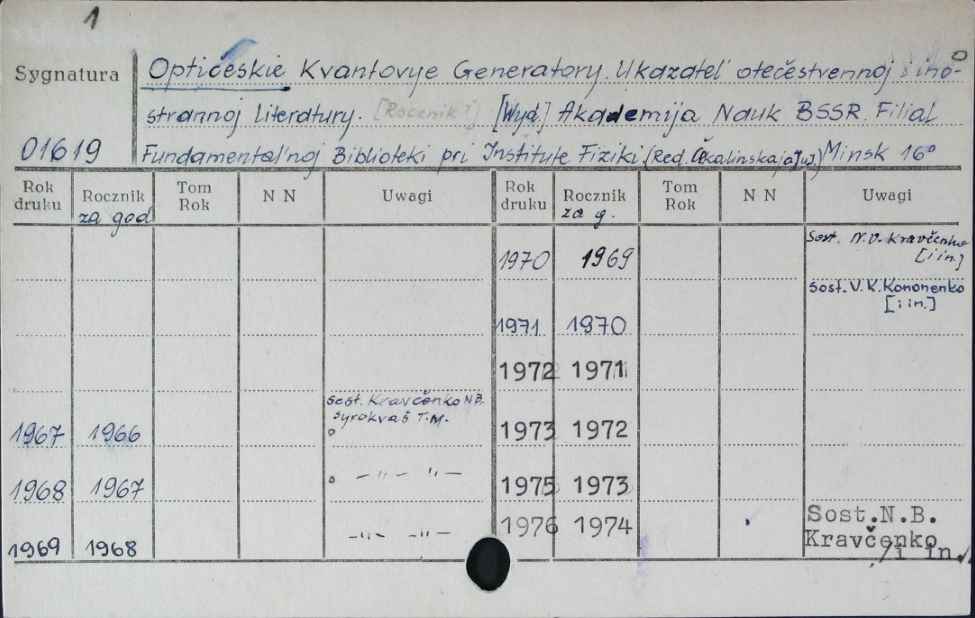 1
Sygnatura Optičeskie Kvantovye Generatory. Ukazatel' otečestvennoj i ino-
strannoj Literatury. [Rocznik?] [Wyd.] Akademija Nauk BSSR. Filial
01619 Fundamental'noj Biblioteki pri Institute Fiziki (Red. Čekalinskaja Ju) Minsk 16°
Rok druku Rocznik za god Tom Rok N N Uwagi Rok druku Rocznik za g. Tom Rok N N Uwagi
1970 1969 Sost. N.V. Kravčenko
[i in.]
1971 1970 Sost. V.K. Kononenko
[i in.]
1972 1971
1967 1966 Sost. Kravčenko N.B.
Syrokvaš T.M. 1973 1972
1968 1967 —"— "— 1975 1973
1969 1968 —"— "— 1976 1974 Sost.N.B.
Kravčenko
/i in./